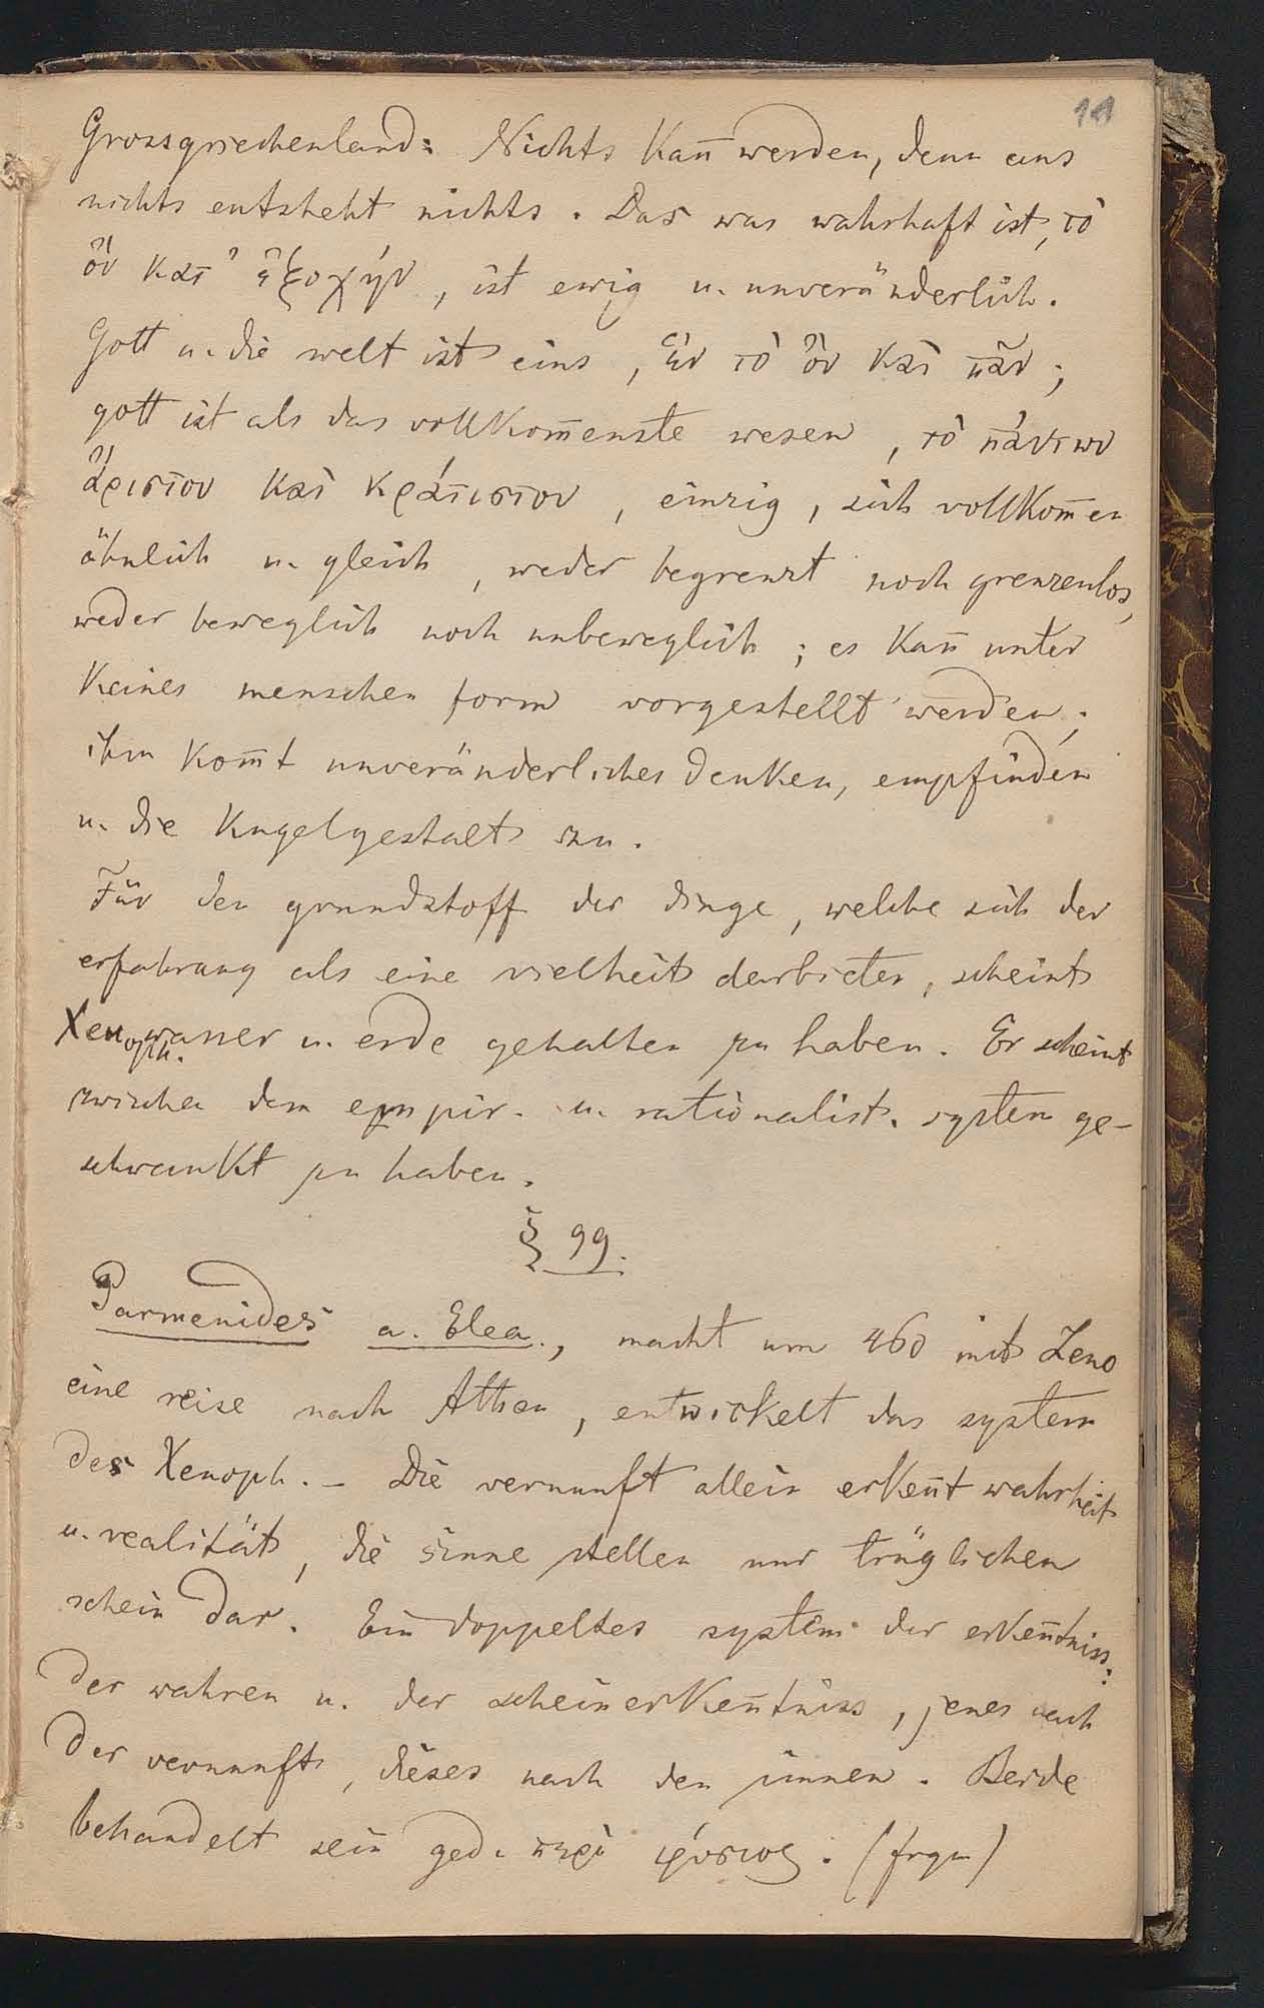 11
Grossgriechenland: Nichts kan̄ werden, denn aus
nichts entsteht nichts. Das was wahrhaft ist, τὸ
ὂν κατ' ἐξοχήν, ist ewig u. unveränderlich.
Gott u. die welt ist eins, ἓν τὸ ὂν καὶ πᾶν;
gott ist als das vollkom̄enste wesen, τὸ πάντων
ἄριστον καὶ κράτιστον, einzig, sich vollkom̄en
ähnlich u. gleich, weder begrenzt noch grenzenlos,
weder beweglich noch unbeweglich; es kan̄ unter
keines menschen form vorgestellt werden;
ihm kom̄t unveränderliches denken, empfinden
u. die kugelgestalt zu.
Für den grundstoff der dinge, welche sich der
erfahrung als eine vielheit darbieten, scheint
Xenoph. wasser u. erde gehalten zu haben. Er scheint
zwischen dem empir. u. rationalist. system ge-
schwankt zu haben.
§ 99.
Parmenides a. Elea., macht um 460 mit Zeno
eine reise nach Athen, entwickelt das system
des Xenoph. – Die vernunft allein erken̄t wahrheit
u. realität, die sinne stellen nur trüglichen
schein dar. Ein doppeltes system der erken̄tniss:
der wahren u. der scheinerken̄tniss, jenes nach
der vernunft, dieses nach den sinnen. Beide
behandelt sein ged. περὶ φύσιος. (frgm)